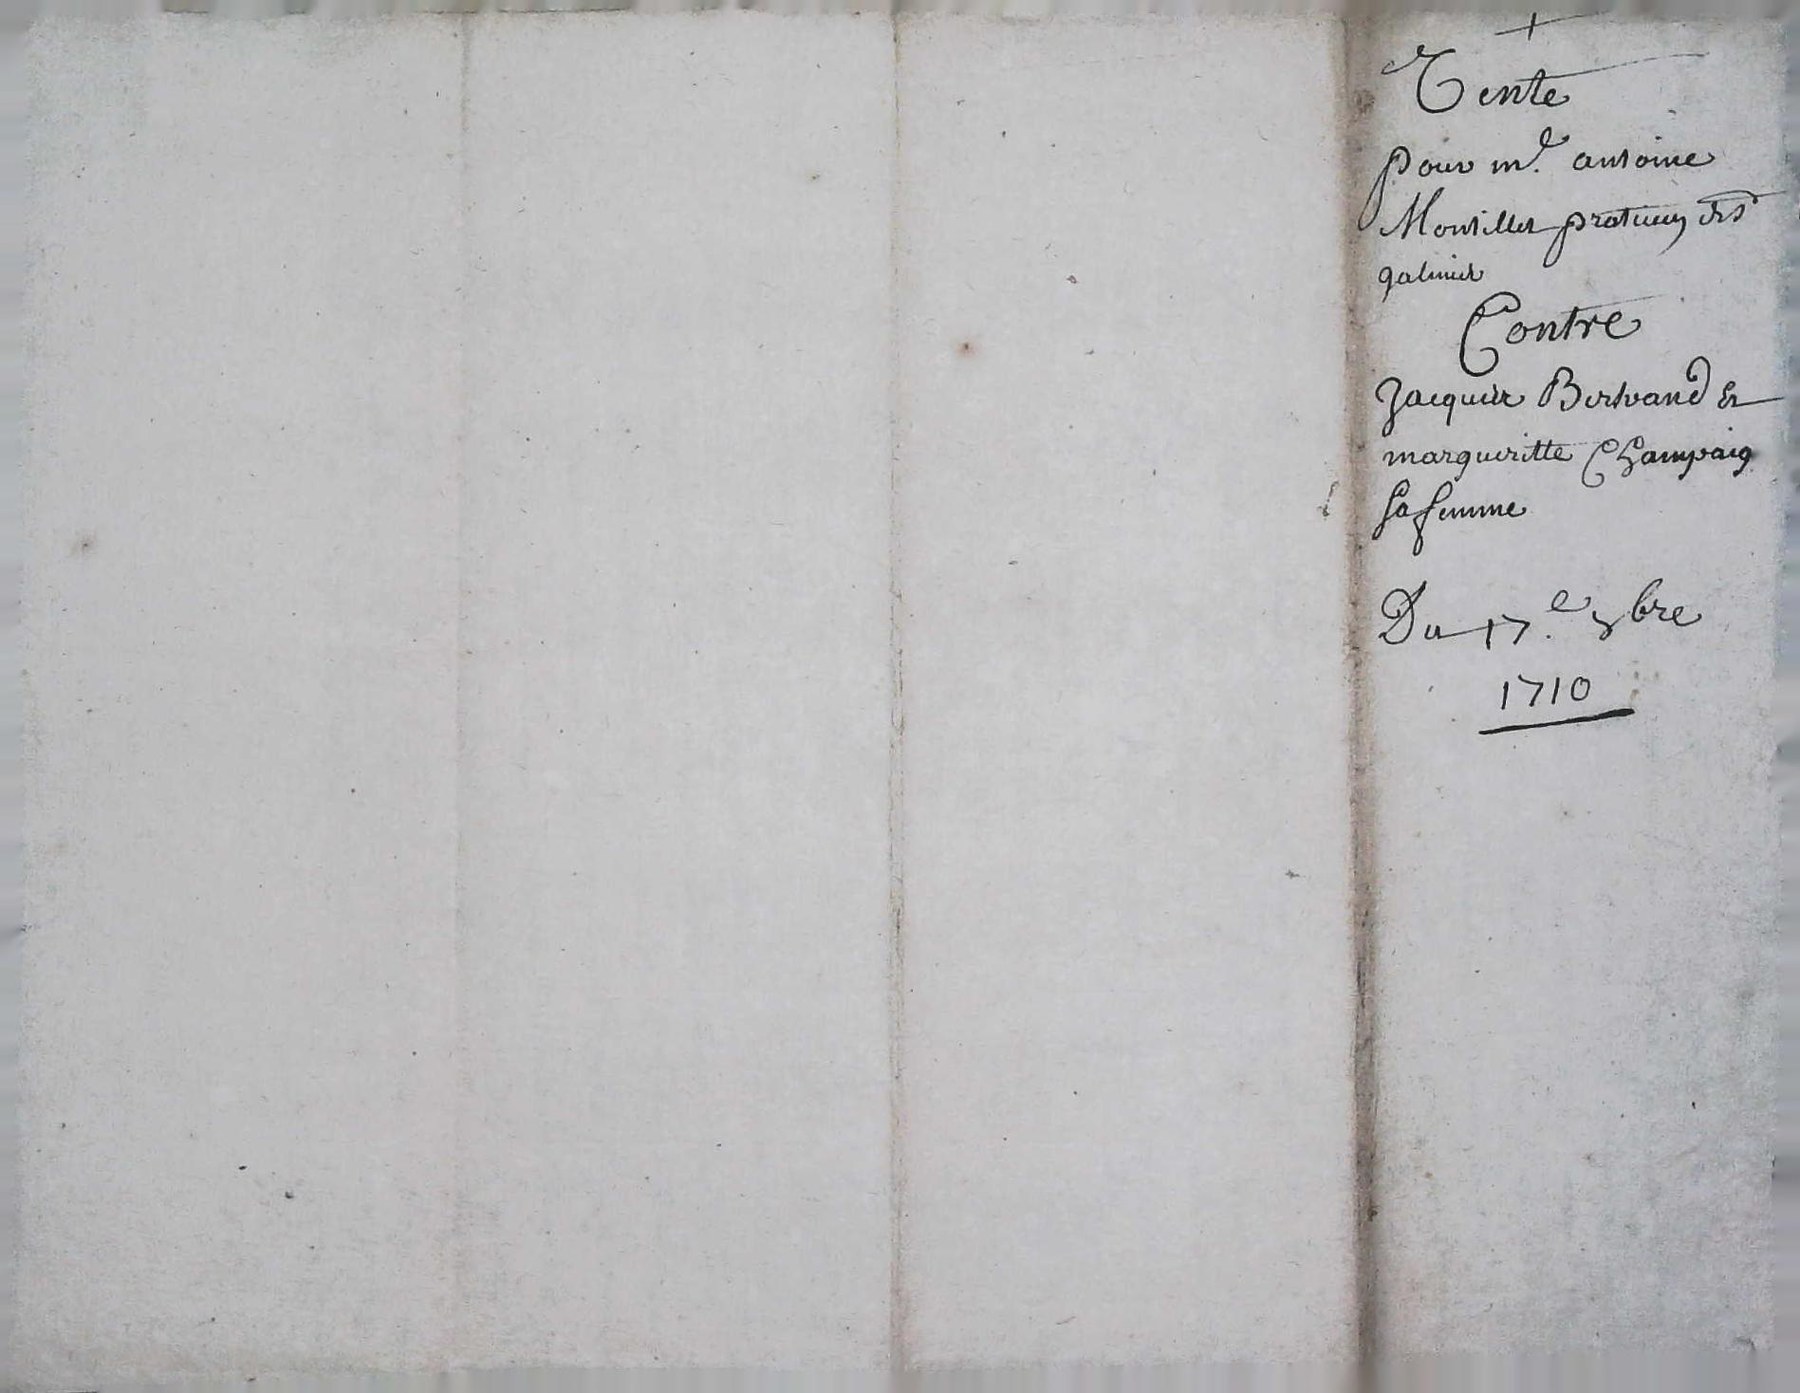 Vente
pour me. antoine
Montillet praticien
galinier
Contre
Jacques Bertrand et
margueritte Champaig
sa femme
Du 17.e xbre
1710